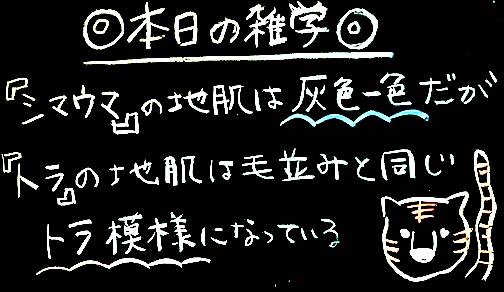 ◎本日の雑学◎
『シマウマ』の地肌は灰色一色だが
『トラ』の地肌は毛並みと同じ
トラ模様になっている